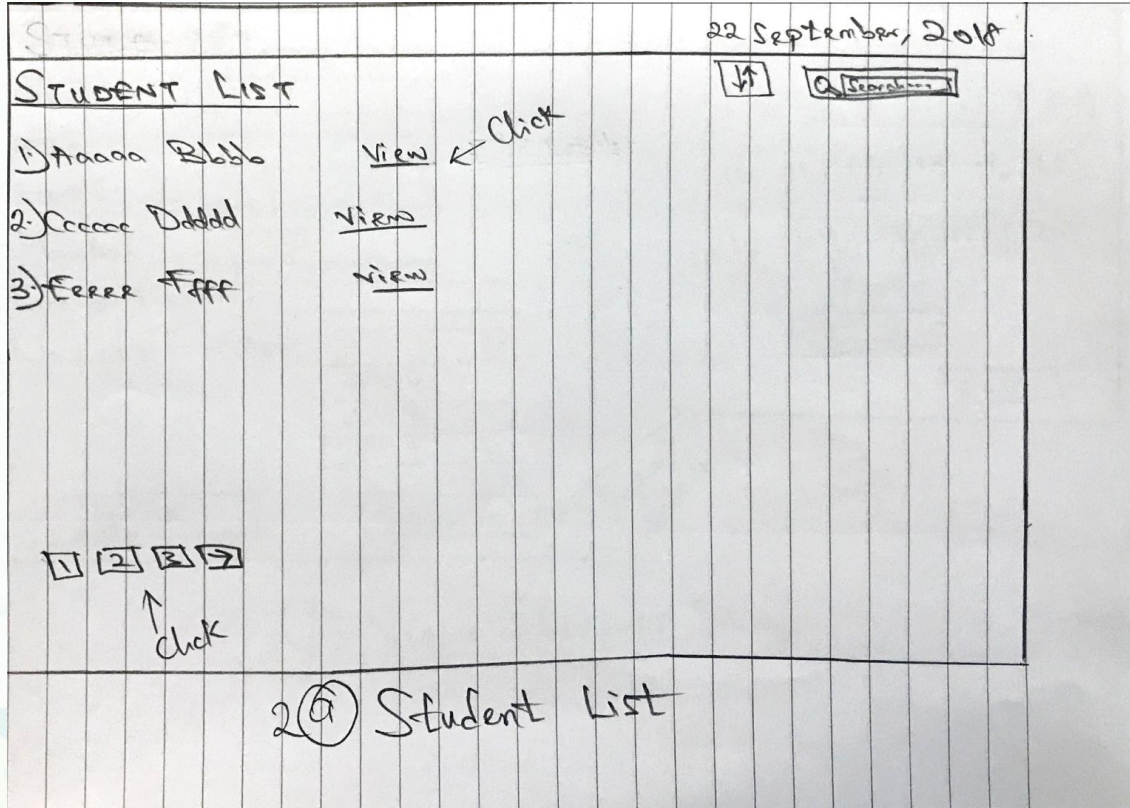 22 September, 2018
STUDENT LIST
↓↑
Search....
1) Aaaaa Bbbb View Click
2.) Cccccc Ddddd View
3.) Eeeee Ffff View
1 2 3 →
Click
2 a Student List